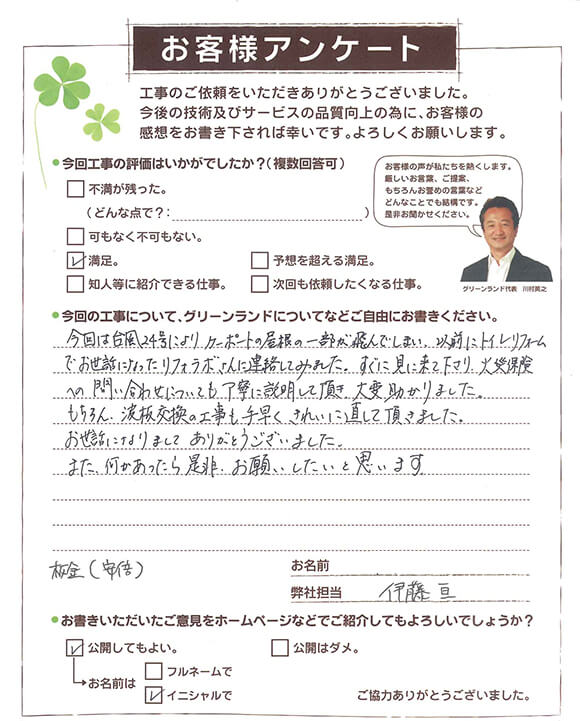 お客様アンケート
工事のご依頼をいただきありがとうございました。
今後の技術及びサービスの品質向上の為に、お客様の
感想をお書き下されば幸いです。よろしくお願いします。
今回工事の評価はいかがでしたか?(複数回答可)
不満が残った。
(どんな点で?: )
可もなく不可もない。
満足。
予想を超える満足。
知人等に紹介できる仕事。
次回も依頼したくなる仕事。
お客様の声が私たちを熱くします。
厳しいお言葉、ご提案、
もちろんお誉めの言葉など
どんなことでも結構です。
是非お聞かせください。
グリーンランド代表 川村英之
今回の工事について、グリーンランドについてなどご自由にお書きください。
今回は台風24号により、カーポートの屋根の一部が飛んでしまい、以前にトイレリフォーム
でお世話になったリフォラボさんに連絡してみました。すぐに見に来て下さり、火災保険
への問い合わせについても丁寧に説明して頂き、大変助かりました。
もちろん、波板交換の工事も手早く、きれいに直して頂きました。
お世話になりまして ありがとうございました。
また、何かあったら是非、お願いしたいと思います
板金(安倍)
お名前
弊社担当 伊藤 亘
お書きいただいたご意見をホームページなどでご紹介してもよろしいでしょうか?
公開してもよい。
公開はダメ。
お名前は
フルネームで
イニシャルで
ご協力ありがとうございました。